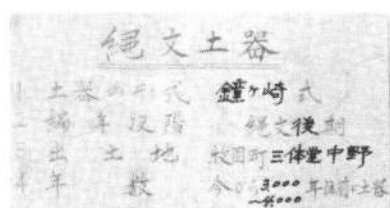 縄文土器
1 土器の形式 鐘ヶ崎式
2 編年段階 縄文後期
3 出土地 牧園町三体堂中野
4 年数 今から3,000~4,000年位前の土器